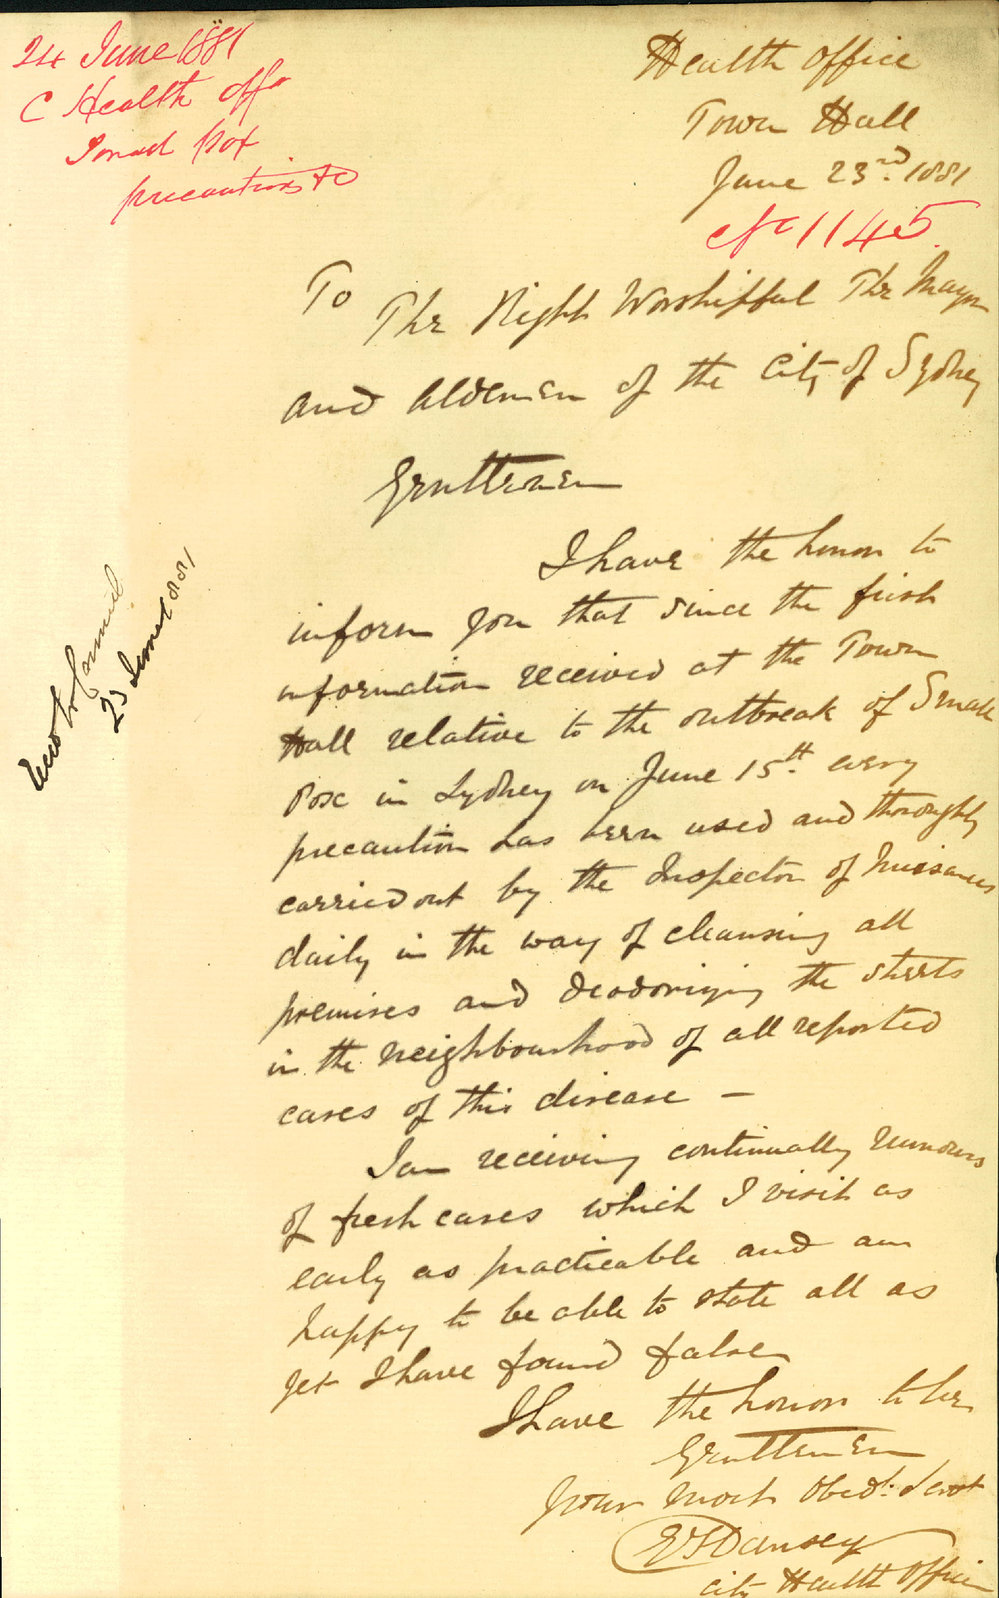 24 June 1881
C Health offr
Small Pox
precautions &c
Health Office
Town Hall
June 23rd. 1881
No 1145.
To The Right Worshipful The Mayor
and Aldermen of the City of Sydney
Gentlemen
I have the honor to
inform you that since the first
information received at the Town
Hall relative to the outbreak of Small
Pox in Sydney on June 15th. every
precaution has been used and thoroughly
carried out by the Inspector of Nuisances
daily in the way of cleansing all
premises and deodorizing the streets
in the neighbourhood of all reported
cases of this disease –
I am receiving continually rumours
of fresh cases which I visit as
early as practicable and am
happy to be able to state all as
yet I have found false
I have the honor to be
Gentlemen
Your most Obedt. Servt
City Health Officer
Council
23 June 1881